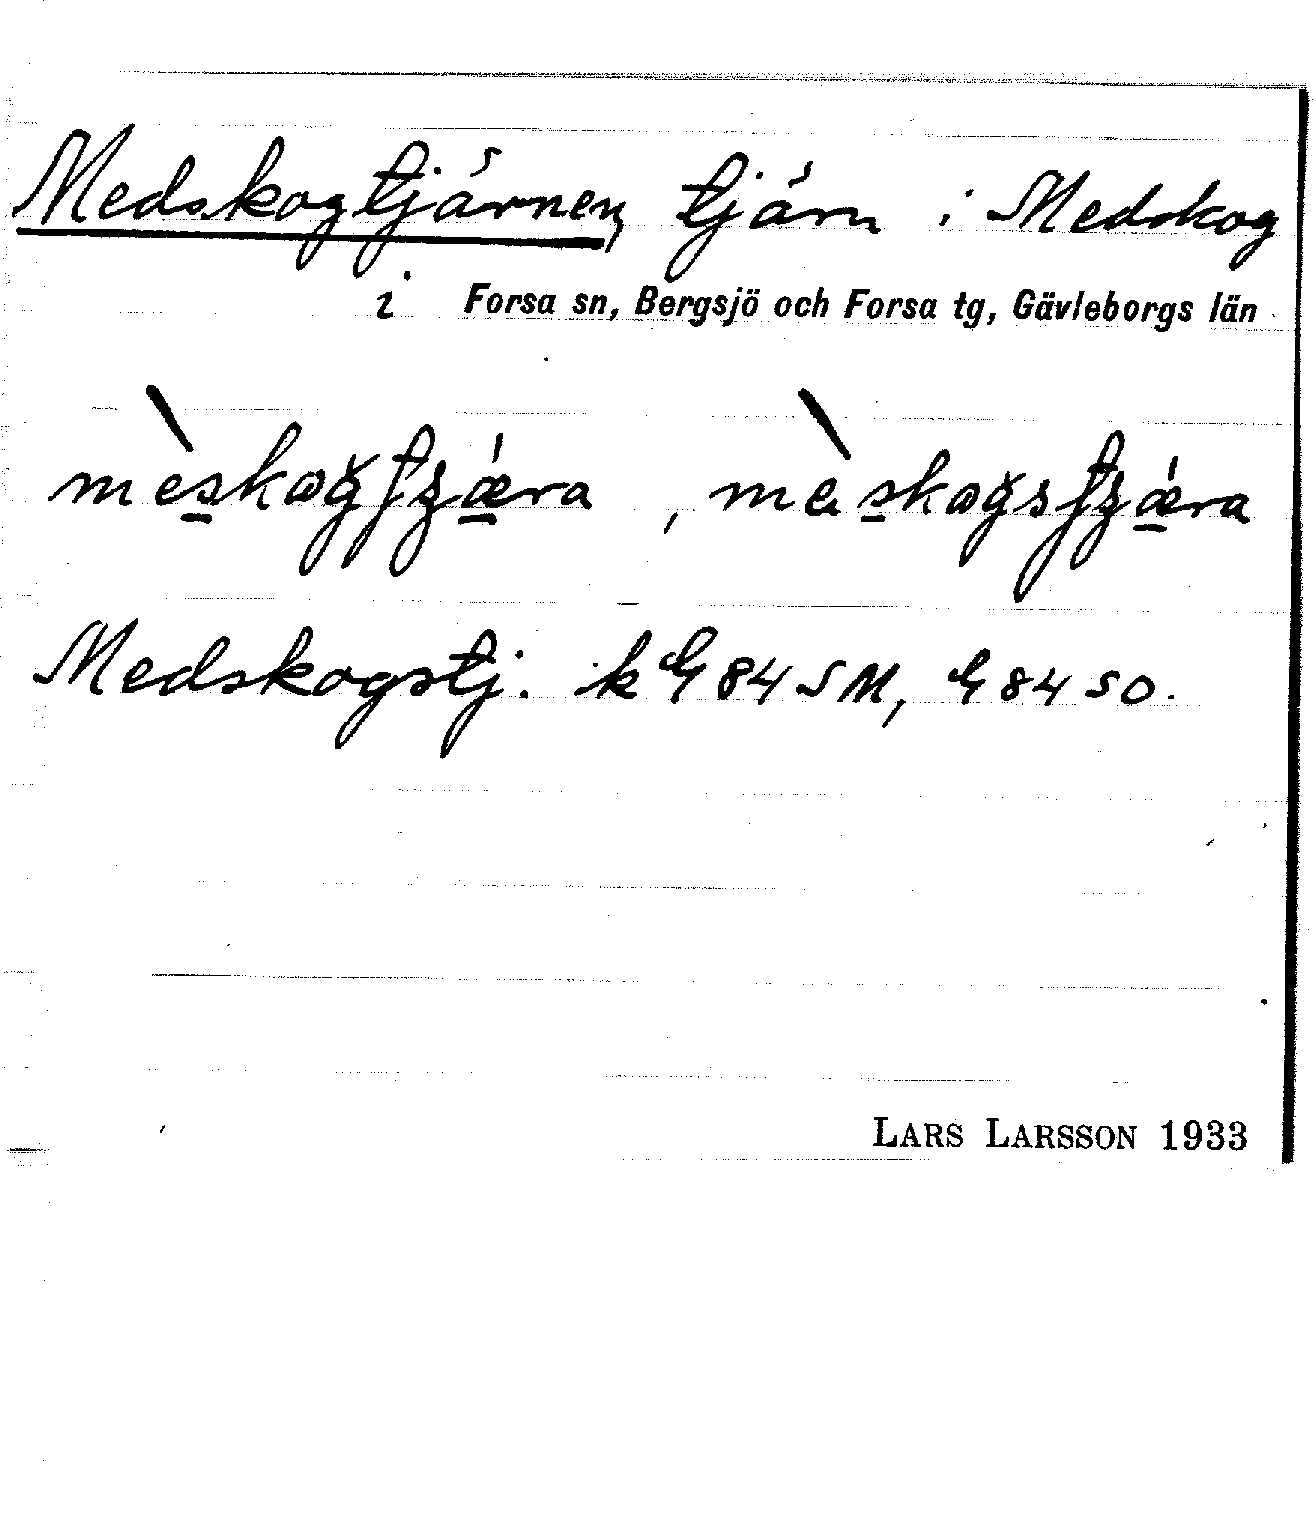 Medskogtjärnen, tjärn i Medskog
i Forsa sn, Bergsjö och Forsa tg, Gävleborgs län
Medskogstj. k G 84 SM, G 84 SO.
LARS LARSSON 1933